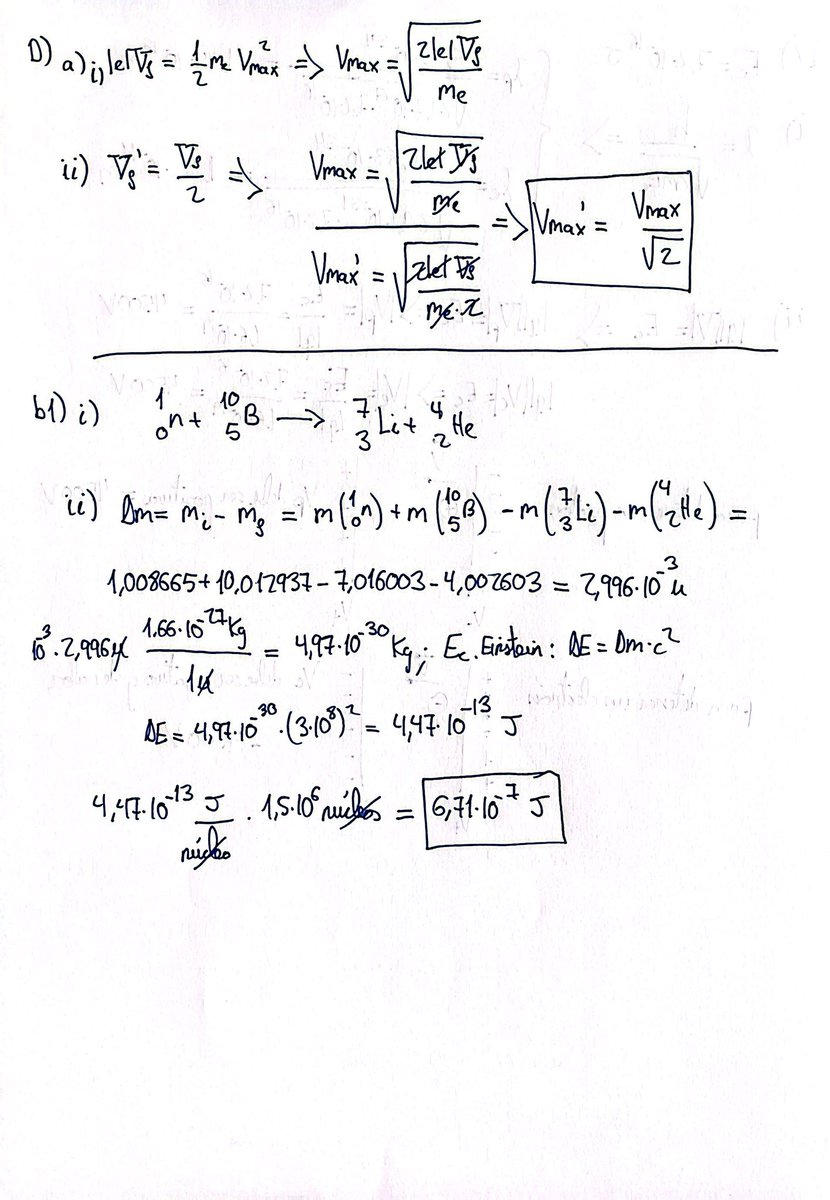 D) a) i) |e|Vf = 1/2 me Vmax² => Vmax = √(2|e|Vf / me)
ii) Vf' = Vf/2 => Vmax = √(2|e|Vf / me) / Vmax' = √(2|e|Vf / me·2) => Vmax' = Vmax/√2
b1) i) ¹₀n + ¹⁰₅B → ⁷₃Li + ⁴₂He
ii) Δm = mi - mf = m(¹₀n) + m(¹⁰₅B) - m(⁷₃Li) - m(⁴₂He) =
1,008665 + 10,012937 - 7,016003 - 4,002603 = 2,996·10⁻³ u
10⁻³·2,996 u 1.66·10⁻²⁷ Kg / 1u = 4,97·10⁻³⁰ Kg; Ec. Einstein: ΔE = Δm·c²
ΔE = 4,97·10⁻³⁰·(3·10⁸)² = 4,47·10⁻¹³ J
4,47·10⁻¹³ J/núcleo · 1,5·10⁶ núcleos = 6,71·10⁻⁷ J